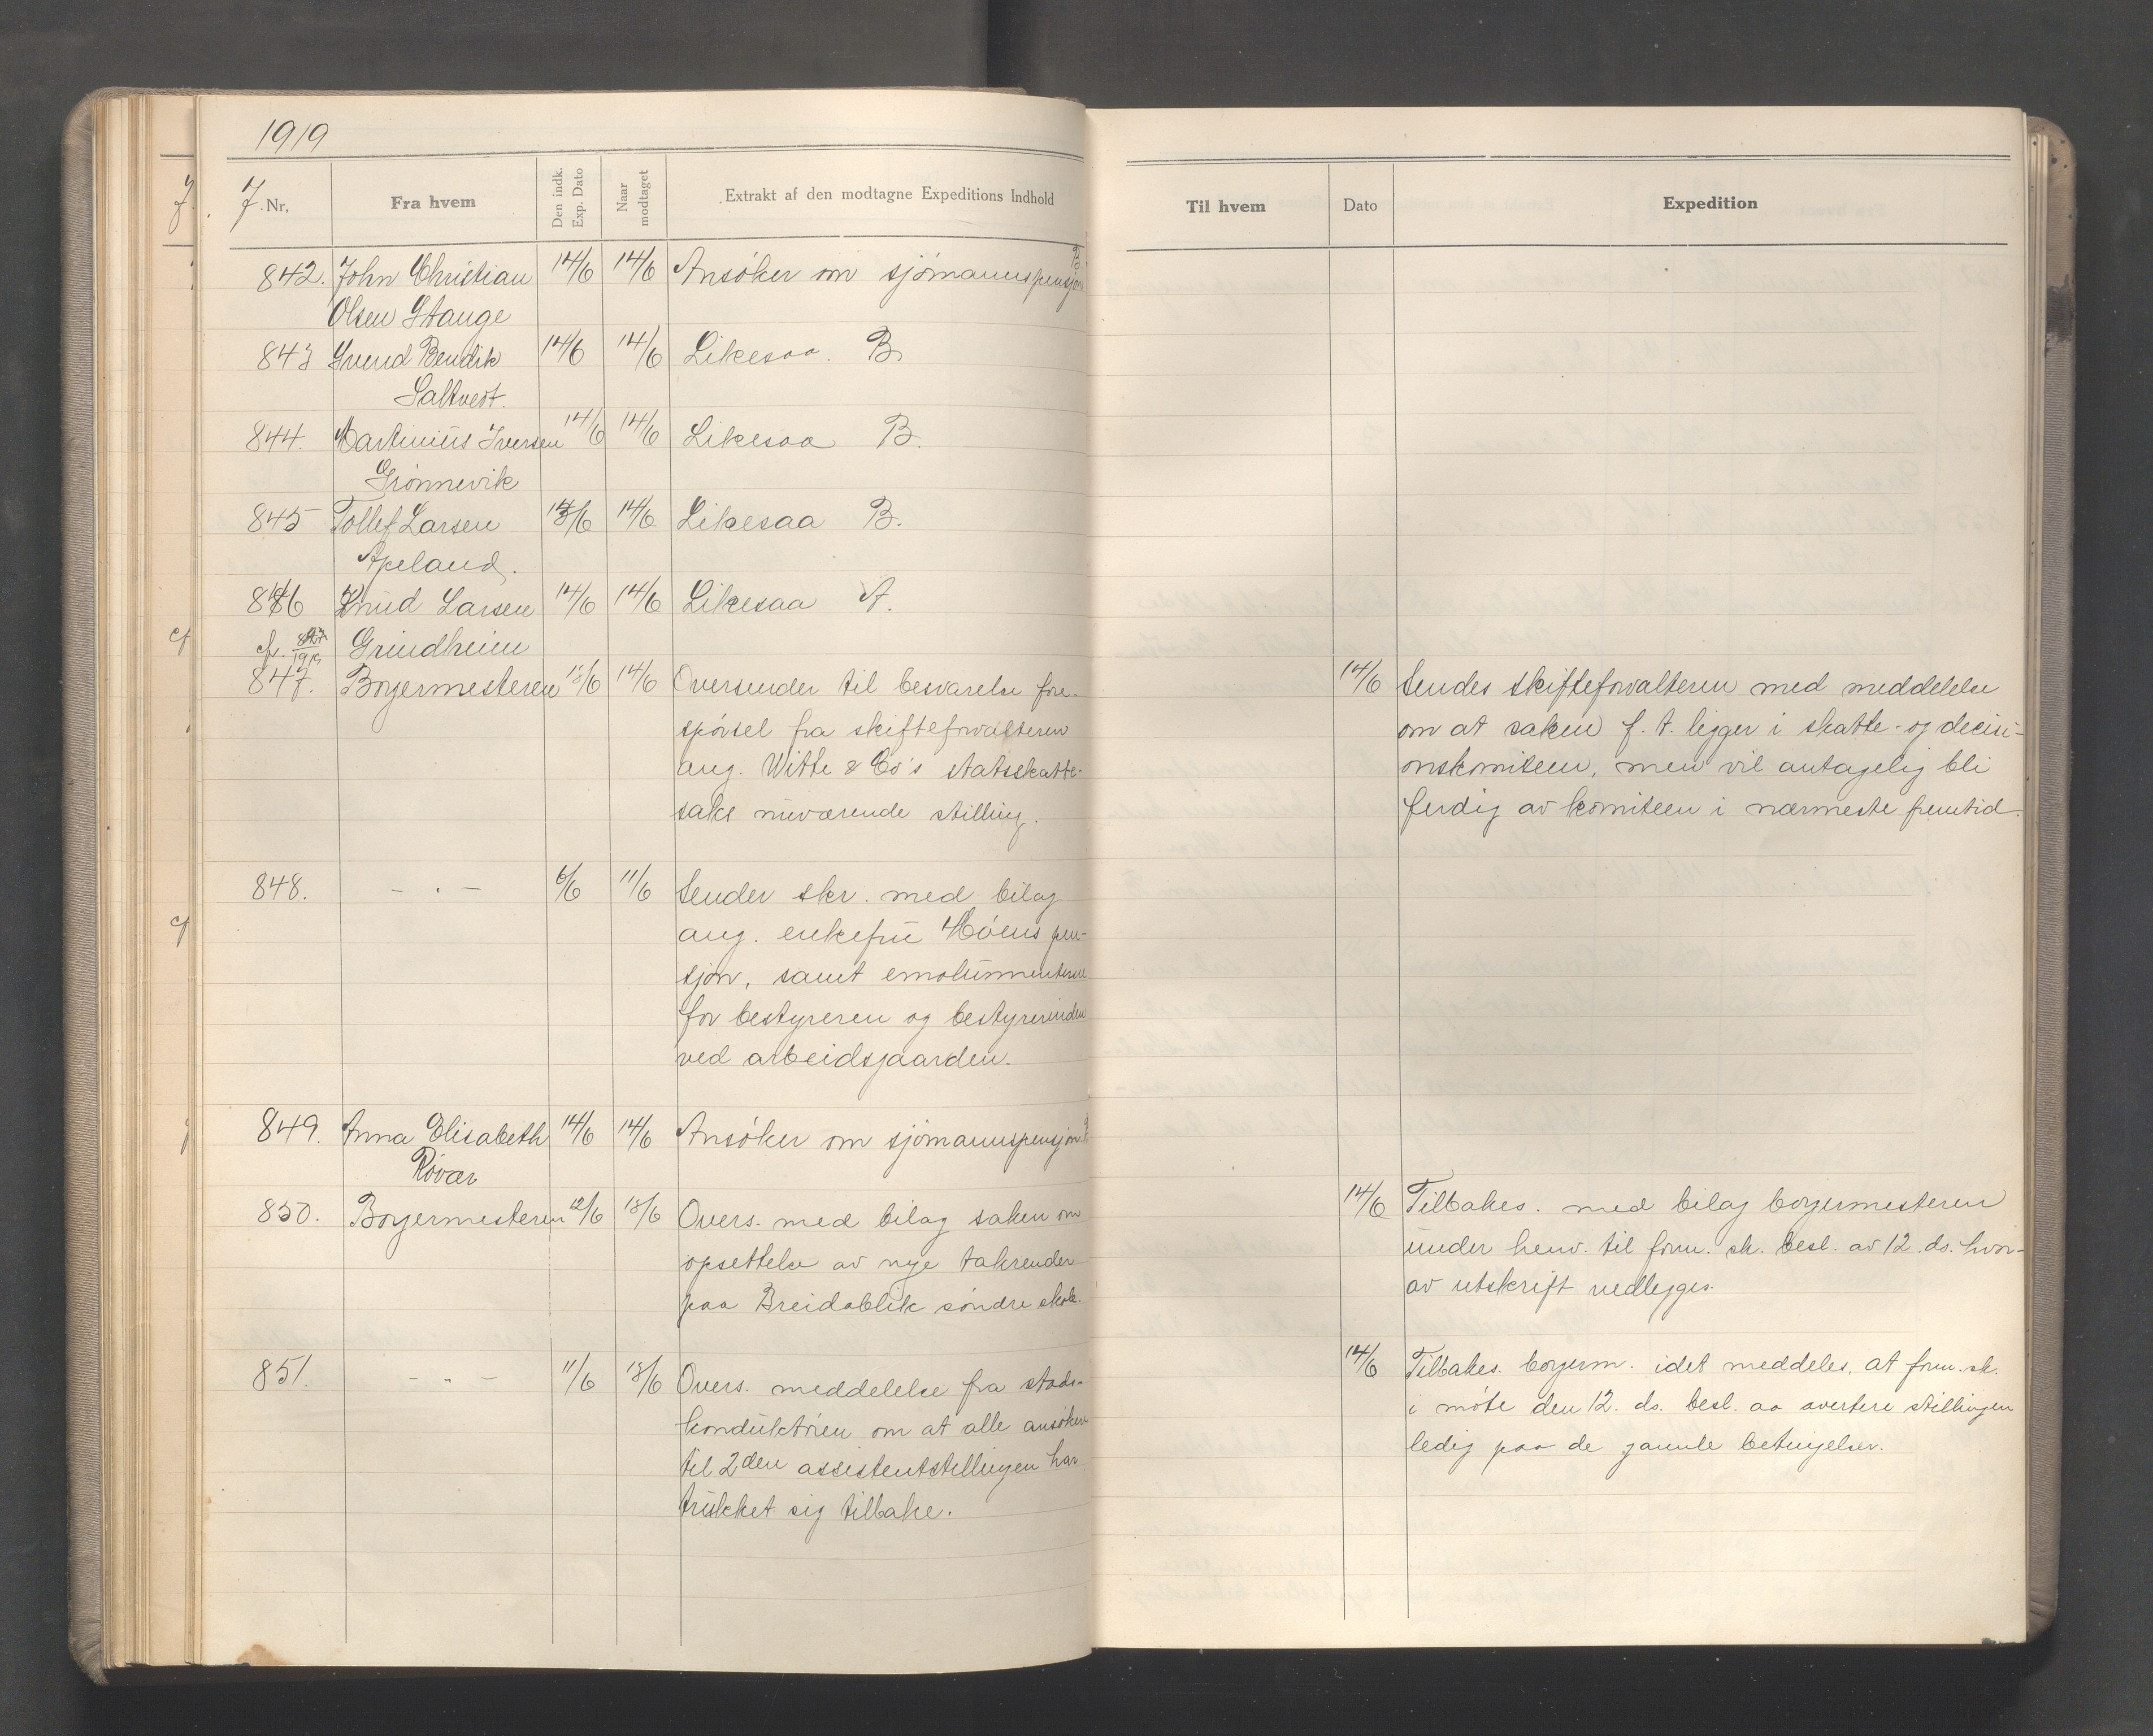 1919
J. Nr.
Fra hvem
Den indk. Exp. Dato
Naar modtaget
Extrakt af den modtagne Expeditions Indhold
842. John Christian 14/6 14/6 Ansöker om sjömannspensjon B.
Olsen Stange
843 Svend Bendik 14/6 14/6 Likesaa. B.
Saltveit.
844. Martinius Iversen 14/6 14/6 Likesaa B.
Grönnevik
845 Tollef Larsen 14/6 Likesaa B.
Apeland.
846 Knud Larsen 14/6 14/6 Likesaa A.
Grindheim
847. Borgermesteren 13/6 14/6 Oversender til besvarelse fore-
spörsel fra skifteforvalteren
ang. Witte & Co's statsskatte-
saks nuværende stilling.
848. — " — 6/6 11/6 Sender skr. med bilag
ang. enkefru Möens pen-
sjon, samt emolumenterne
for bestyreren og bestyrerinden
ved arbeidsgaarden.
849. Anna Elisabeth 14/6 14/6 Ansöker om sjömannspensjon
Röver
850. Borgermesteren 12/6 13/6 Overs. med bilag saken om
opsettelse av nye takrender
paa Breidablik söndre skole.
851. — " — 11/6 13/6 Overs. meddelelse fra stads-
konduktören om at alle ansökere
til 2den assistentstillingen har
trukket sig tilbake.
Til hvem
Dato
Expedition
14/6 Sendes skifteforvalteren med meddelelse
om at saken f. t. ligger i skatte- og decisi-
onskomiteen, men vil antagelig bli
ferdig av komiteen i nærmeste fremtid.
14/6 Tilbakes. med bilag borgermesteren
under henv. til form. sk. besl. av 12. ds. hvor-
av utskrift vedlegges.
14/6 Tilbakes. borgerm. idet meddeles, at form. sk.
i möte den 12. ds. besl. aa avertere stillingen
ledig paa de gamle betingelser.